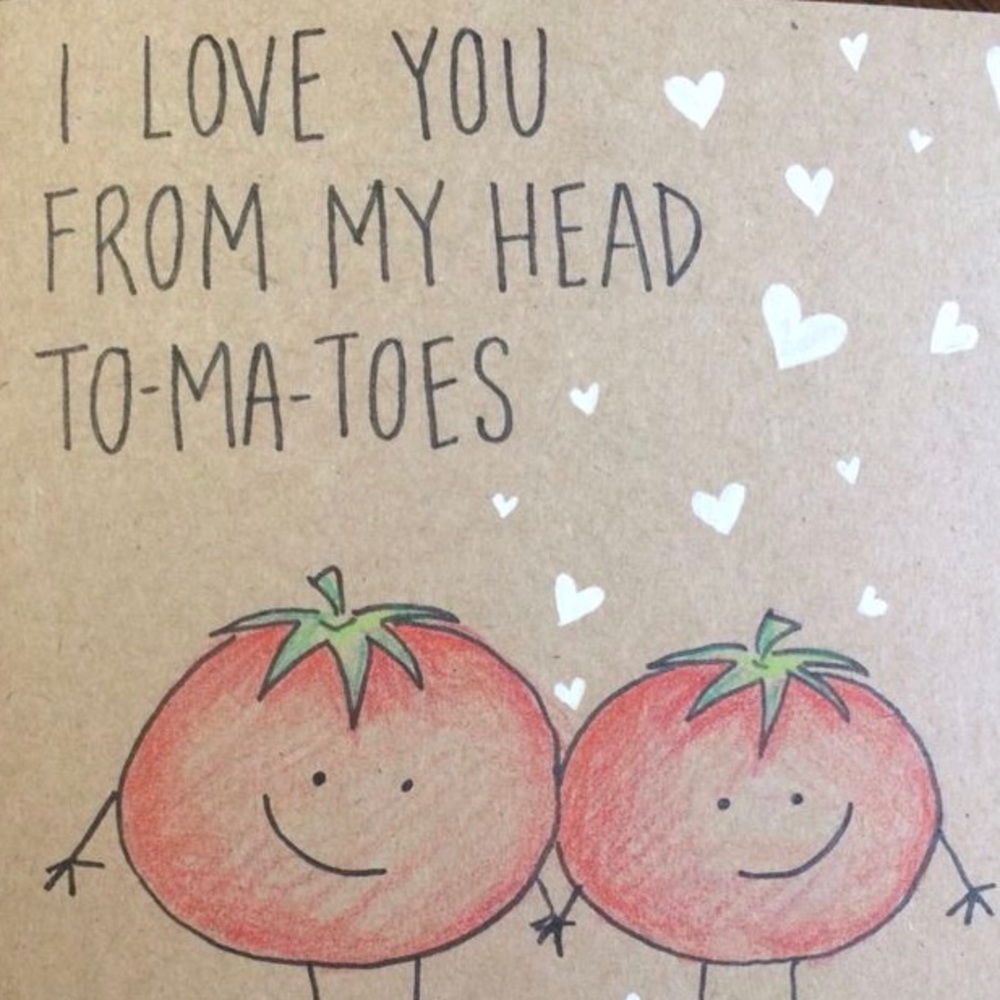 I LOVE YOU
FROM MY HEAD
TO-MA-TOES